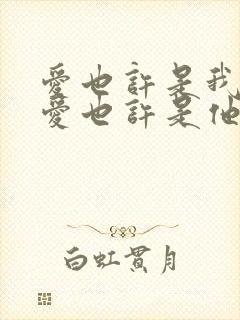 愛也許是我
愛也許是他
白虹貫月